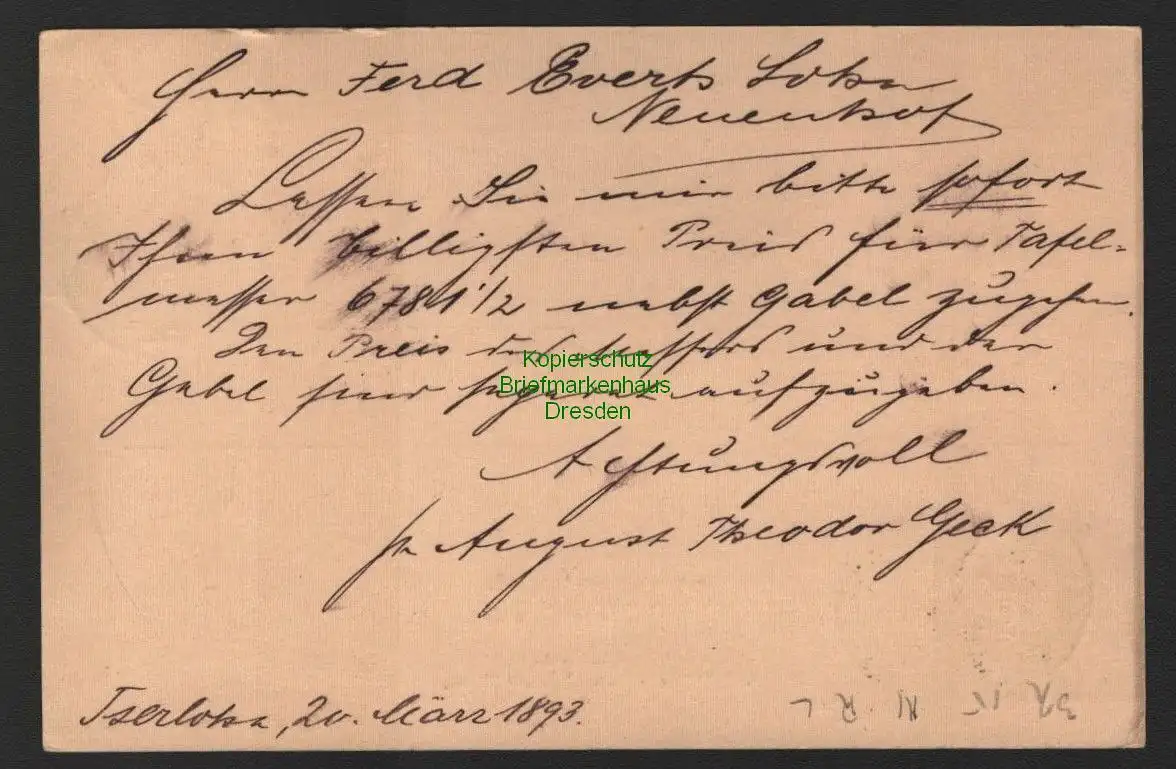 Herrn Ferd Everts Sohn
Neuenhof
Lassen Sie mir bitte sofort
Ihren billigsten Preis für Tafel=
messer 6781 1/2 nebst Gabel zugehen.
Den Preis des Messers und der
Gabel sind separat aufzugeben.
Kopierschutz
Briefmarkenhaus
Dresden
Achtungsvoll
pr August Theodor Geck
Iserlohn, 20. März 1893.